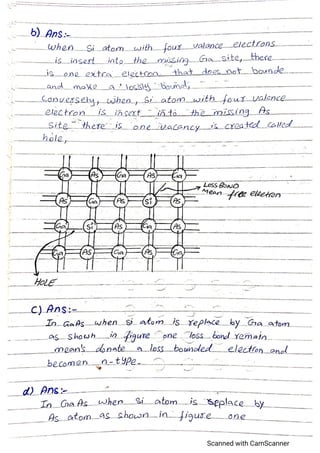 b) Ans:-
when Si atom with four valance electrons
is insert into the missing Ga site, there
is one extra electron that does not bounde
and make a lossly bound,
Conversely, when, Si atom with four valence
electron is insert into the missing As
site there is one vacancy is created called
hole,
Ga As Ga As Ga
LOSS BOND
Mean free electron
As Ga As Si As
Ga Si As Ga As
Ga As Ga As Ga
HOLE
C) Ans:-
In GaAs when Si atom is replace by Ga atom
as shown in figure one loss bond remain
mean's donate a loss bounded electron and
becomen n-type.
d) Ans:-
In GaAs when Si atom is replace by
As atom as shown in figure one
Scanned with CamScanner